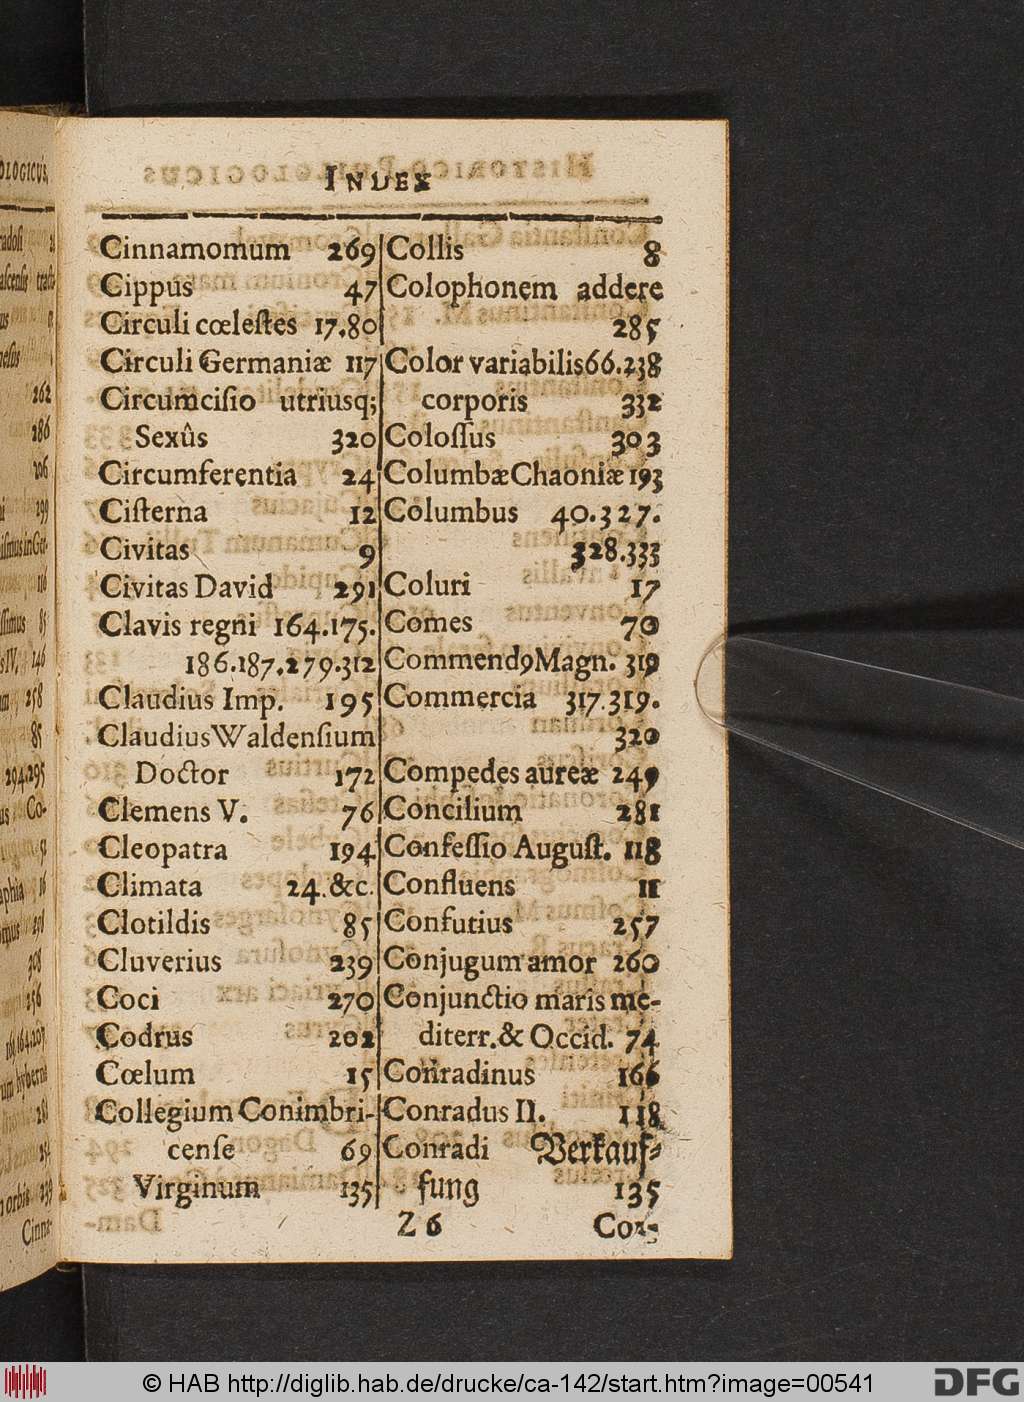 INDEX
Cinnamomum 269
Cippus 47
Circuli cœleſtes 17.80
Circuli Germaniæ 117
Circumciſio utriusq;
Sexûs 320
Circumferentia 24
Ciſterna 12
Civitas 9
Civitas David 291
Clavis regni 164.175.
186.187.279.312
Claudius Imp. 195
Claudius Waldenſium
Doctor 172
Clemens V. 76
Cleopatra 194
Climata 24.&c.
Clotildis 85
Cluverius 239
Coci 270
Codrus 202
Cœlum 15
Collegium Conimbri-
cenſe 69
Virginum 135
Collis 8
Colophonem addere
285
Color variabilis 66.238
corporis 332
Coloſſus 303
Columbæ Chaoniæ 193
Columbus 40.327.
328.333
Coluri 17
Comes 70
Commendꝰ Magn. 319
Commercia 317.319.
320
Compedes aureæ 249
Concilium 281
Confeſſio Auguſt. 118
Confluens 11
Confutius 257
Conjugum amor 260
Conjunctio maris me-
diterr. & Occid. 74
Conradinus 166
Conradus II. 118
Conradi Verkauf-
fung 135
Z 6
Con-
© HAB http://diglib.hab.de/drucke/ca-142/start.htm?image=00541
DFG